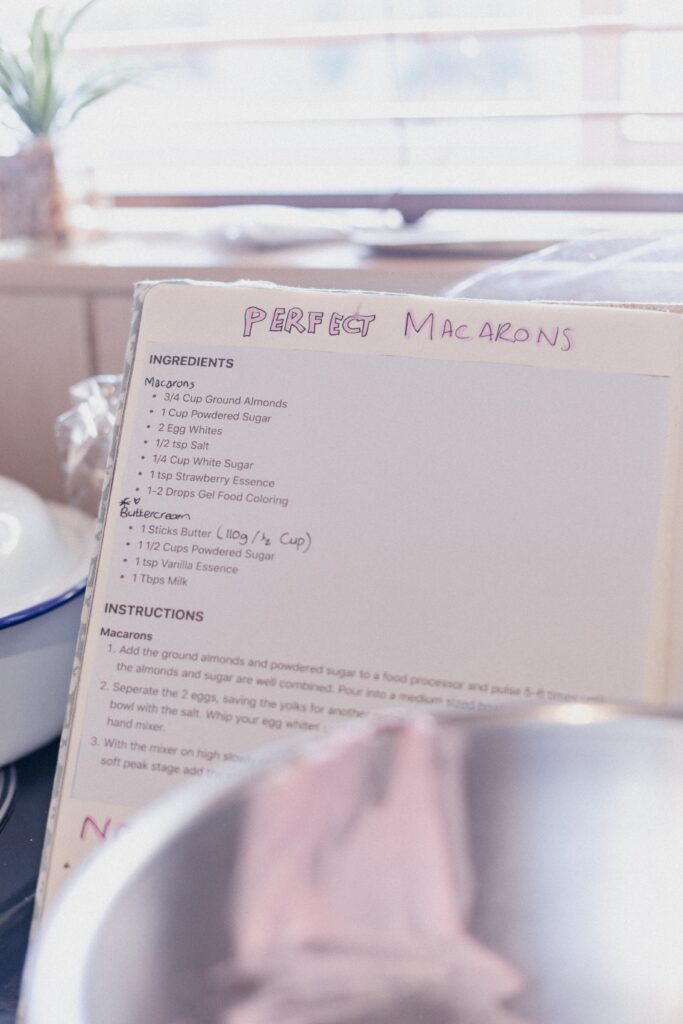 PERFECT MACARONS
INGREDIENTS
Macarons
• 3/4 Cup Ground Almonds
• 1 Cup Powdered Sugar
• 2 Egg Whites
• 1/2 tsp Salt
• 1/4 Cup White Sugar
• 1 tsp Strawberry Essence
• 1-2 Drops Gel Food Coloring
Buttercream
• 1 Sticks Butter (110g/½ Cup)
• 1 1/2 Cups Powdered Sugar
• 1 tsp Vanilla Essence
• 1 Tbps Milk
INSTRUCTIONS
Macarons
1. Add the ground almonds and powdered sugar to a food processor and pulse 5-6 times until
the almonds and sugar are well combined. Pour into a medium sized bowl
2. Seperate the 2 eggs, saving the yolks for another
bowl with the salt. Whip your egg whites
hand mixer.
3. With the mixer on high slowly
soft peak stage add the